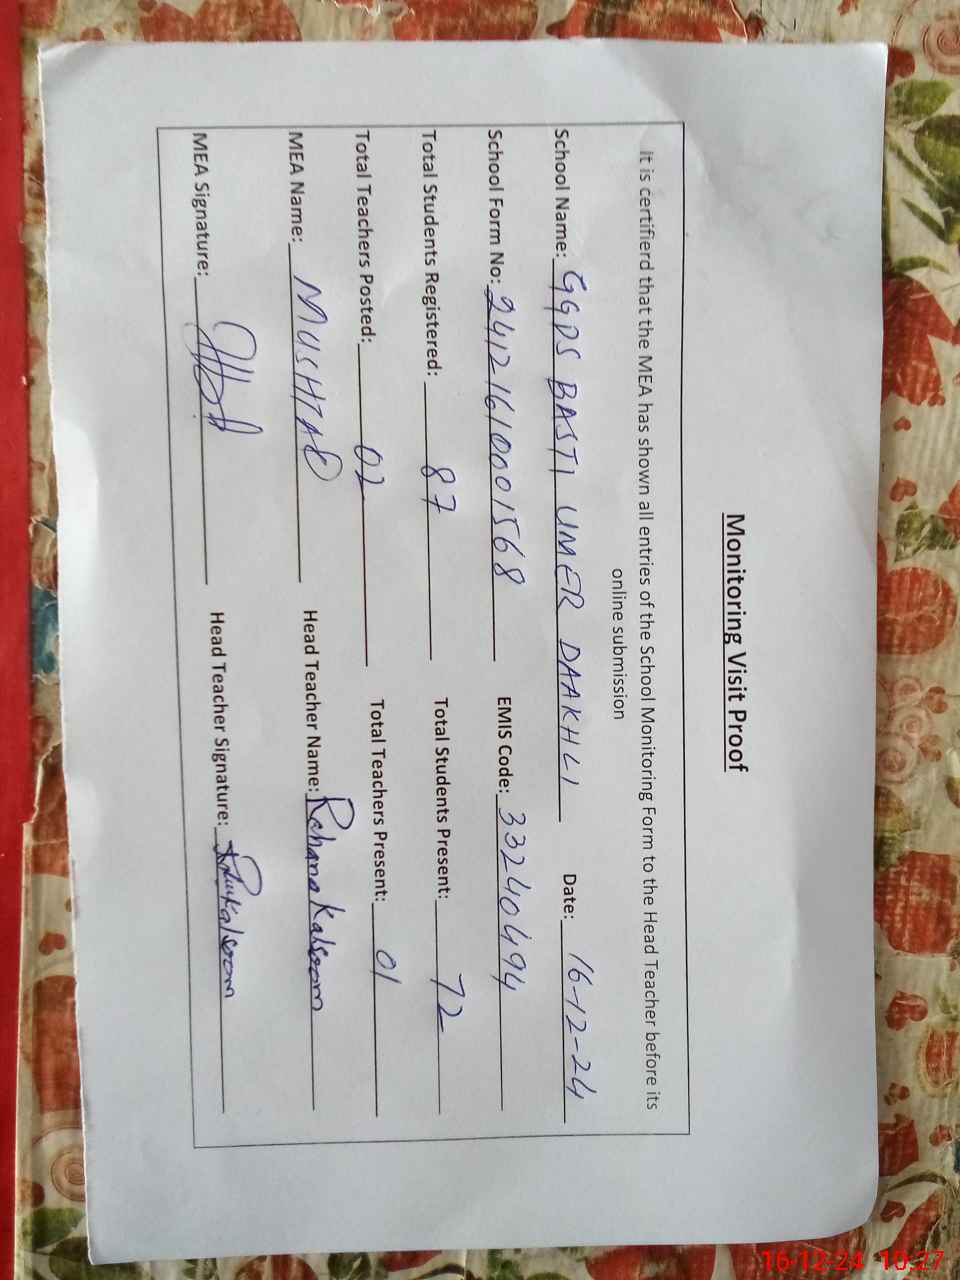 Monitoring Visit Proof
It is certifierd that the MEA has shown all entries of the School Monitoring Form to the Head Teacher before its
online submission
School Name: GGPS BASTI UMER DAAKHLI Date: 16-12-24
School Form No: 24121610001568 EMIS Code: 33240494
Total Students Registered: 87 Total Students Present: 72
Total Teachers Posted: 02 Total Teachers Present: 01
MEA Name: MUSHTAQ Head Teacher Name: Rehana Kalsoom
MEA Signature: Head Teacher Signature:
16-12-24 10:27